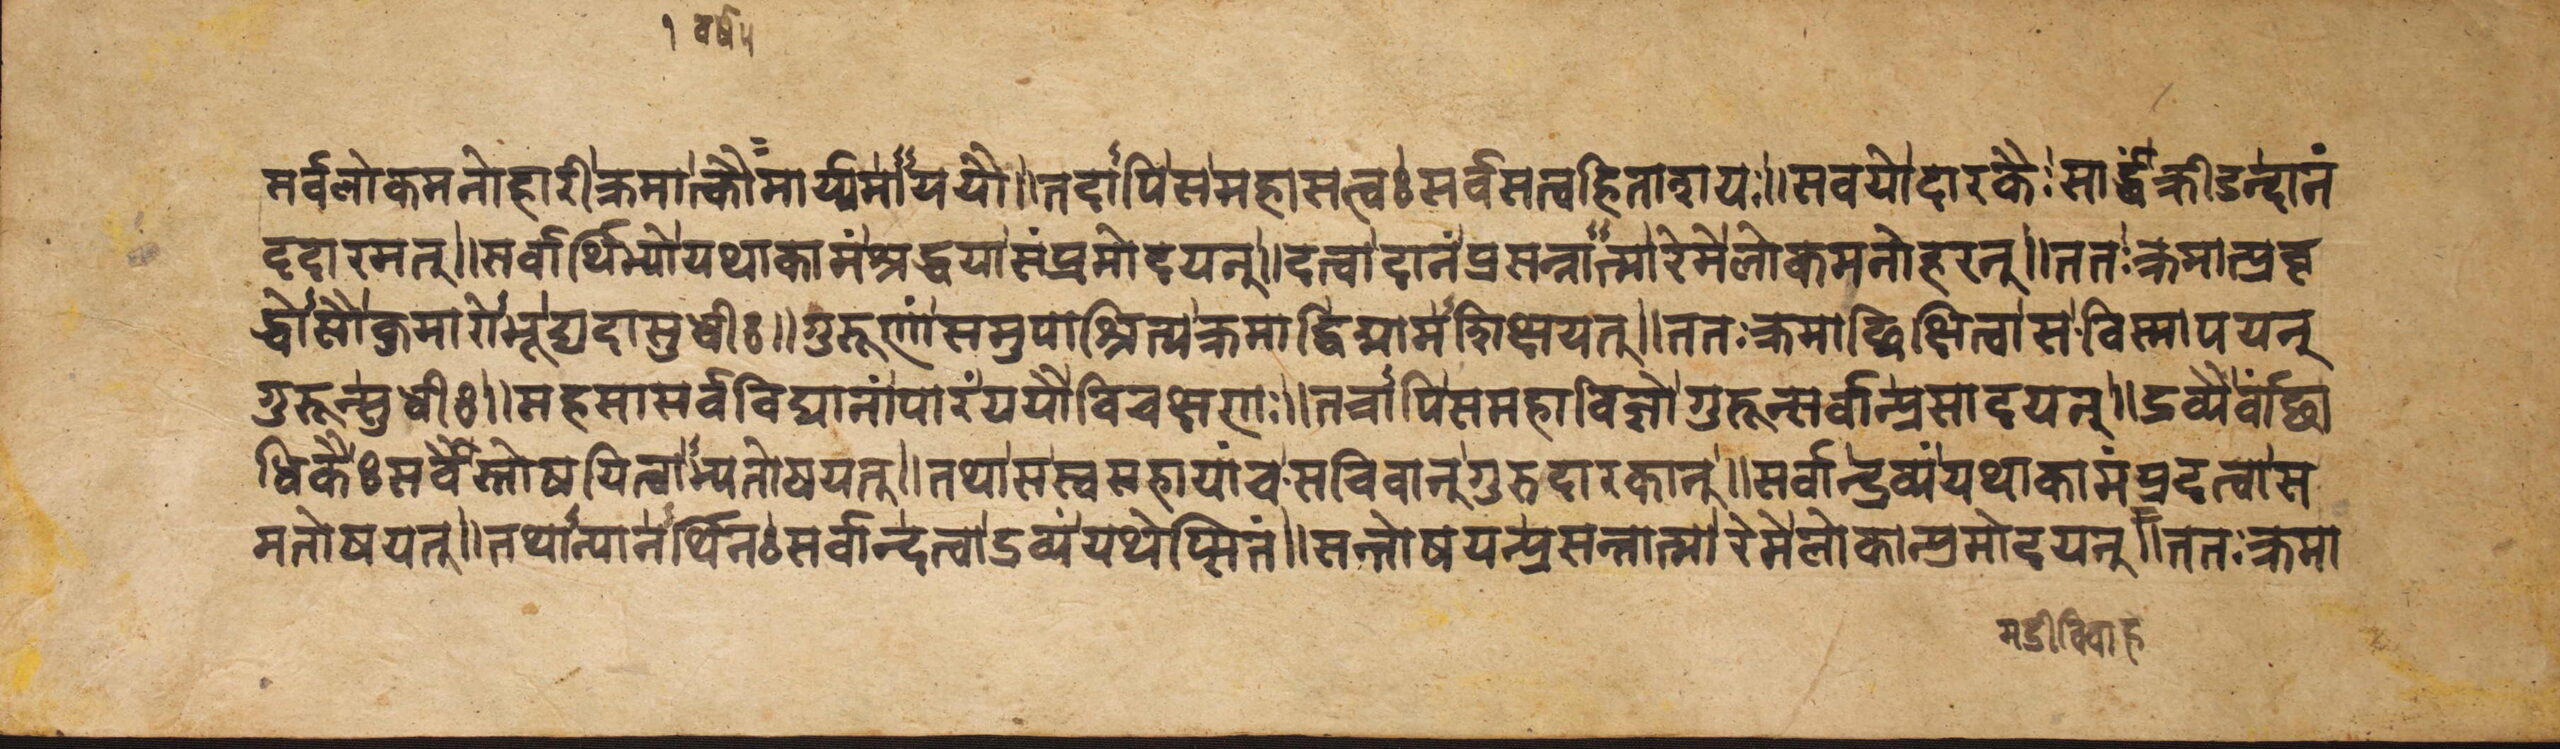 १ वर्ष५
सर्वलोकमनोहारी क्रमात्कौमार्य्यमाययौ॥ तदापि स महासत्वः सर्वसत्वहिताशयः॥ सवयोदारकैः सार्द्धं क्रीडन्दानं
ददारमत्॥ सर्वार्थिभ्यो यथाकामं श्रद्धया संप्रमोदयन्॥ दत्वा दानं प्रसन्नात्मा रेमे लोकमनोहरन्॥ ततः क्रमात्प्रवृ
द्धोसौ कुमारोभूद्यदा सुधीः॥ गुरूणां समुपाश्रित्य क्रमाद्विद्यामशिक्षयत्॥ ततः क्रमाच्छिक्षित्वा स विस्मापयन्
गुरून्सुधीः॥ सहसा सर्वविद्यानां पारं ययौ विचक्षणः॥ तत्रापि स महाविज्ञो गुरून्सर्वान्प्रसादयन्॥ द्रव्यैर्वांछा
धिकैः सर्वैस्तोषयित्वाभ्यतोषयत्॥ तथा स स्वसहायांच सचिवान् गुरुदारकान्॥ सर्वान्द्रव्यं यथाकामं प्रदत्वा स
मतोषयत्॥ तथान्यानर्थिनः सर्वान्दत्वा द्रव्यं यथेप्सितं॥ सन्तोषयन्प्रसन्नात्मा रेमे लोकान्प्रमोदयन्॥ ततः क्रमा
मद्रीविवाह